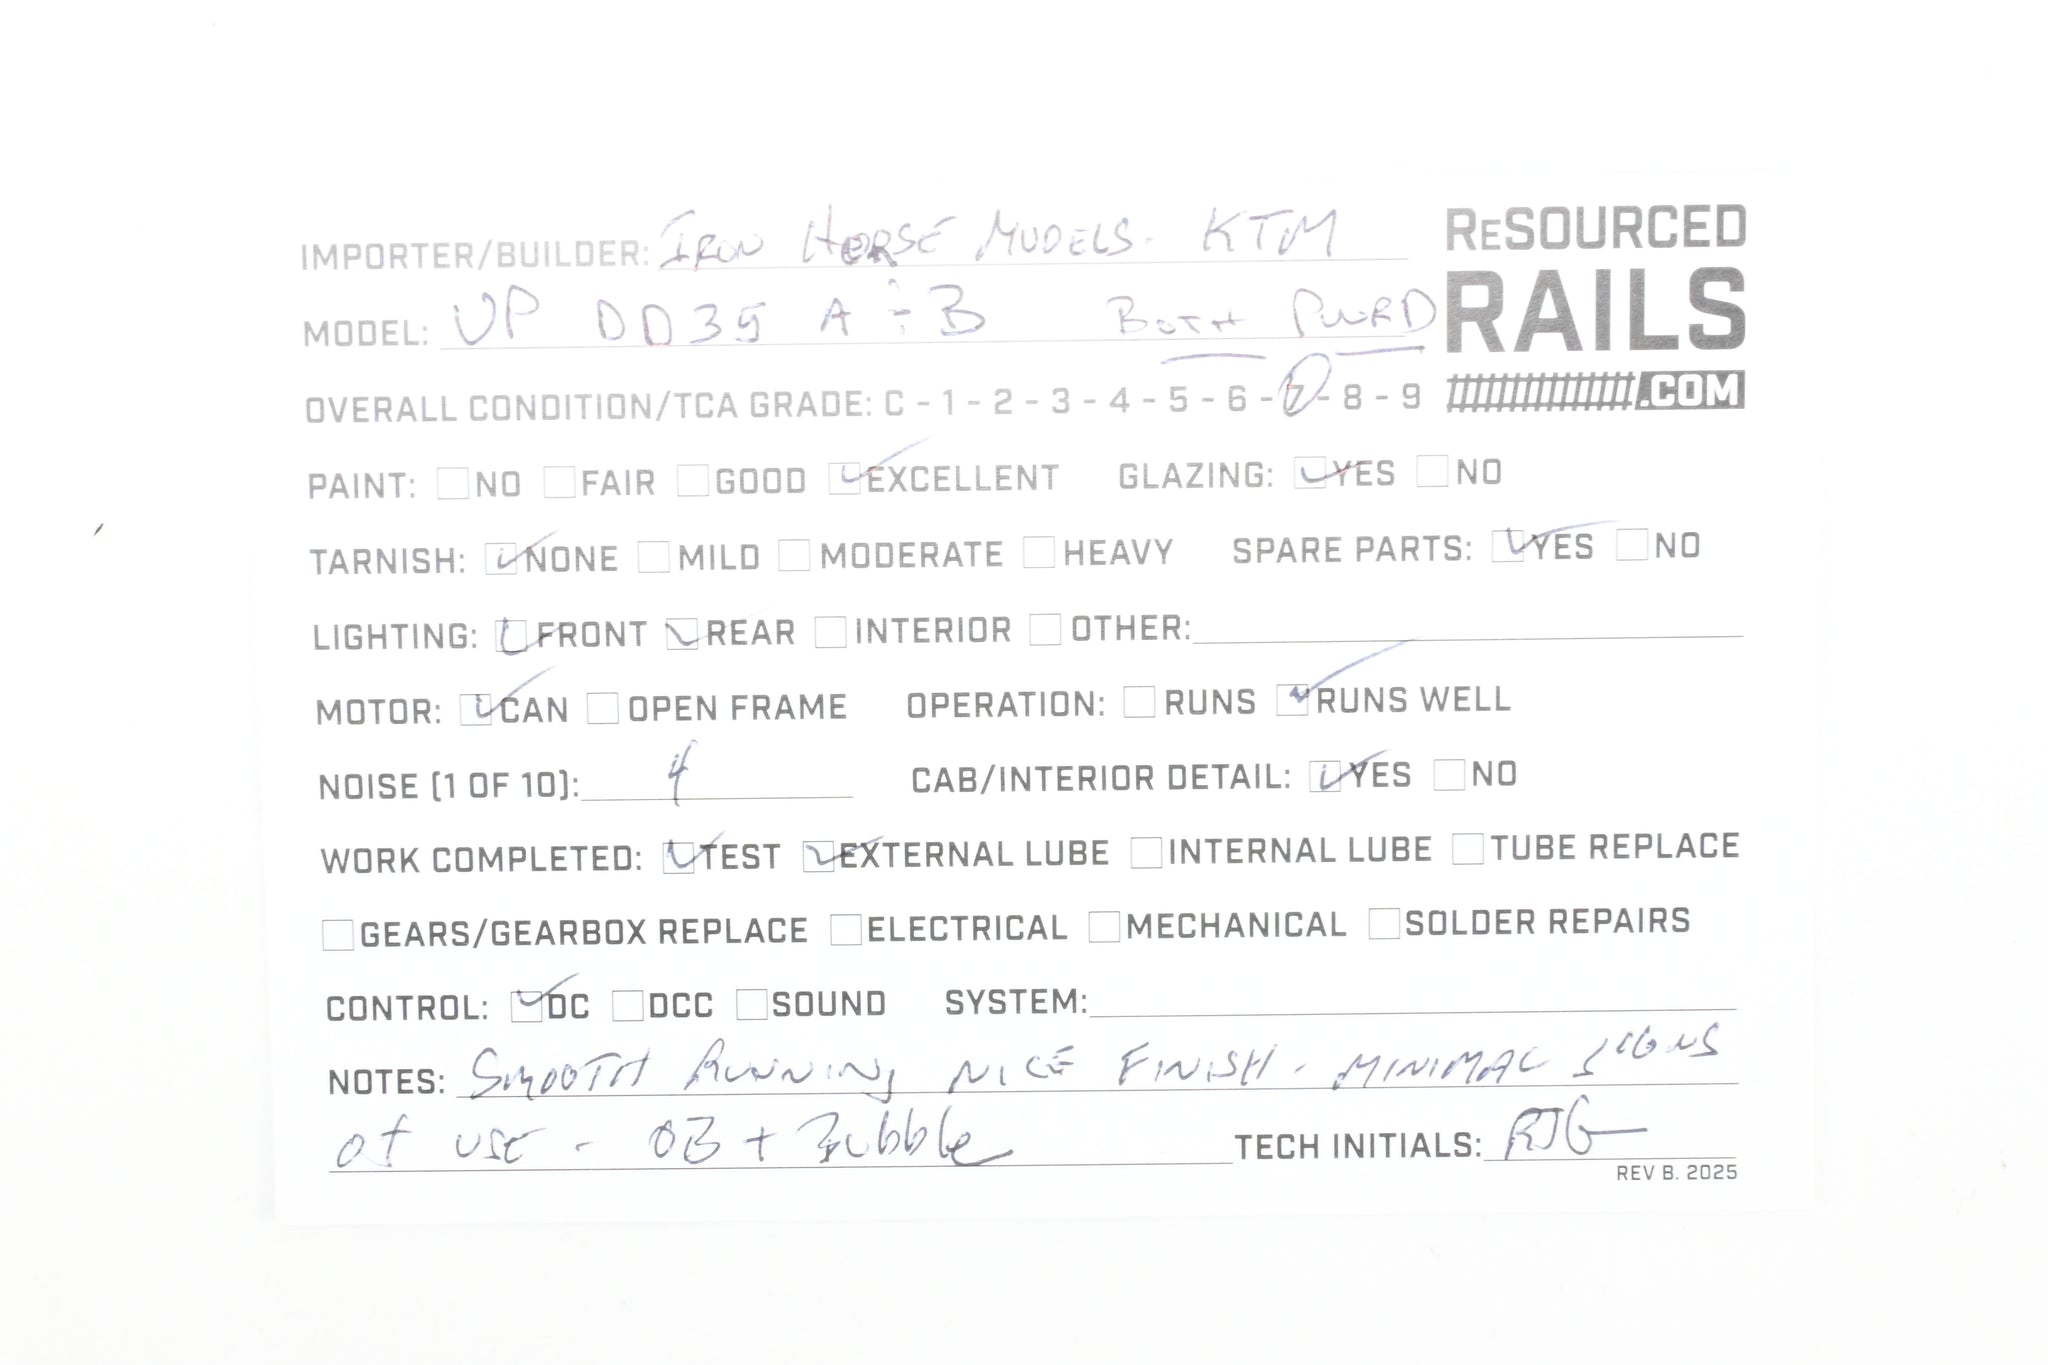 IMPORTER/BUILDER: IRON HORSE MODELS. KTM
RESOURCED
RAILS
.COM
MODEL: UP DD35 A & B BOTH PWRD
OVERALL CONDITION/TCA GRADE: C - 1 - 2 - 3 - 4 - 5 - 6 - 7 - 8 - 9
PAINT: NO FAIR GOOD EXCELLENT GLAZING: YES NO
TARNISH: NONE MILD MODERATE HEAVY SPARE PARTS: YES NO
LIGHTING: FRONT REAR INTERIOR OTHER:
MOTOR: CAN OPEN FRAME OPERATION: RUNS RUNS WELL
NOISE (1 OF 10): 4 CAB/INTERIOR DETAIL: YES NO
WORK COMPLETED: TEST EXTERNAL LUBE INTERNAL LUBE TUBE REPLACE
GEARS/GEARBOX REPLACE ELECTRICAL MECHANICAL SOLDER REPAIRS
CONTROL: DC DCC SOUND SYSTEM:
NOTES: SMOOTH RUNNING NICE FINISH - MINIMAL SIGNS
of USE - OB + Bubble TECH INITIALS: RJG
REV B. 2025